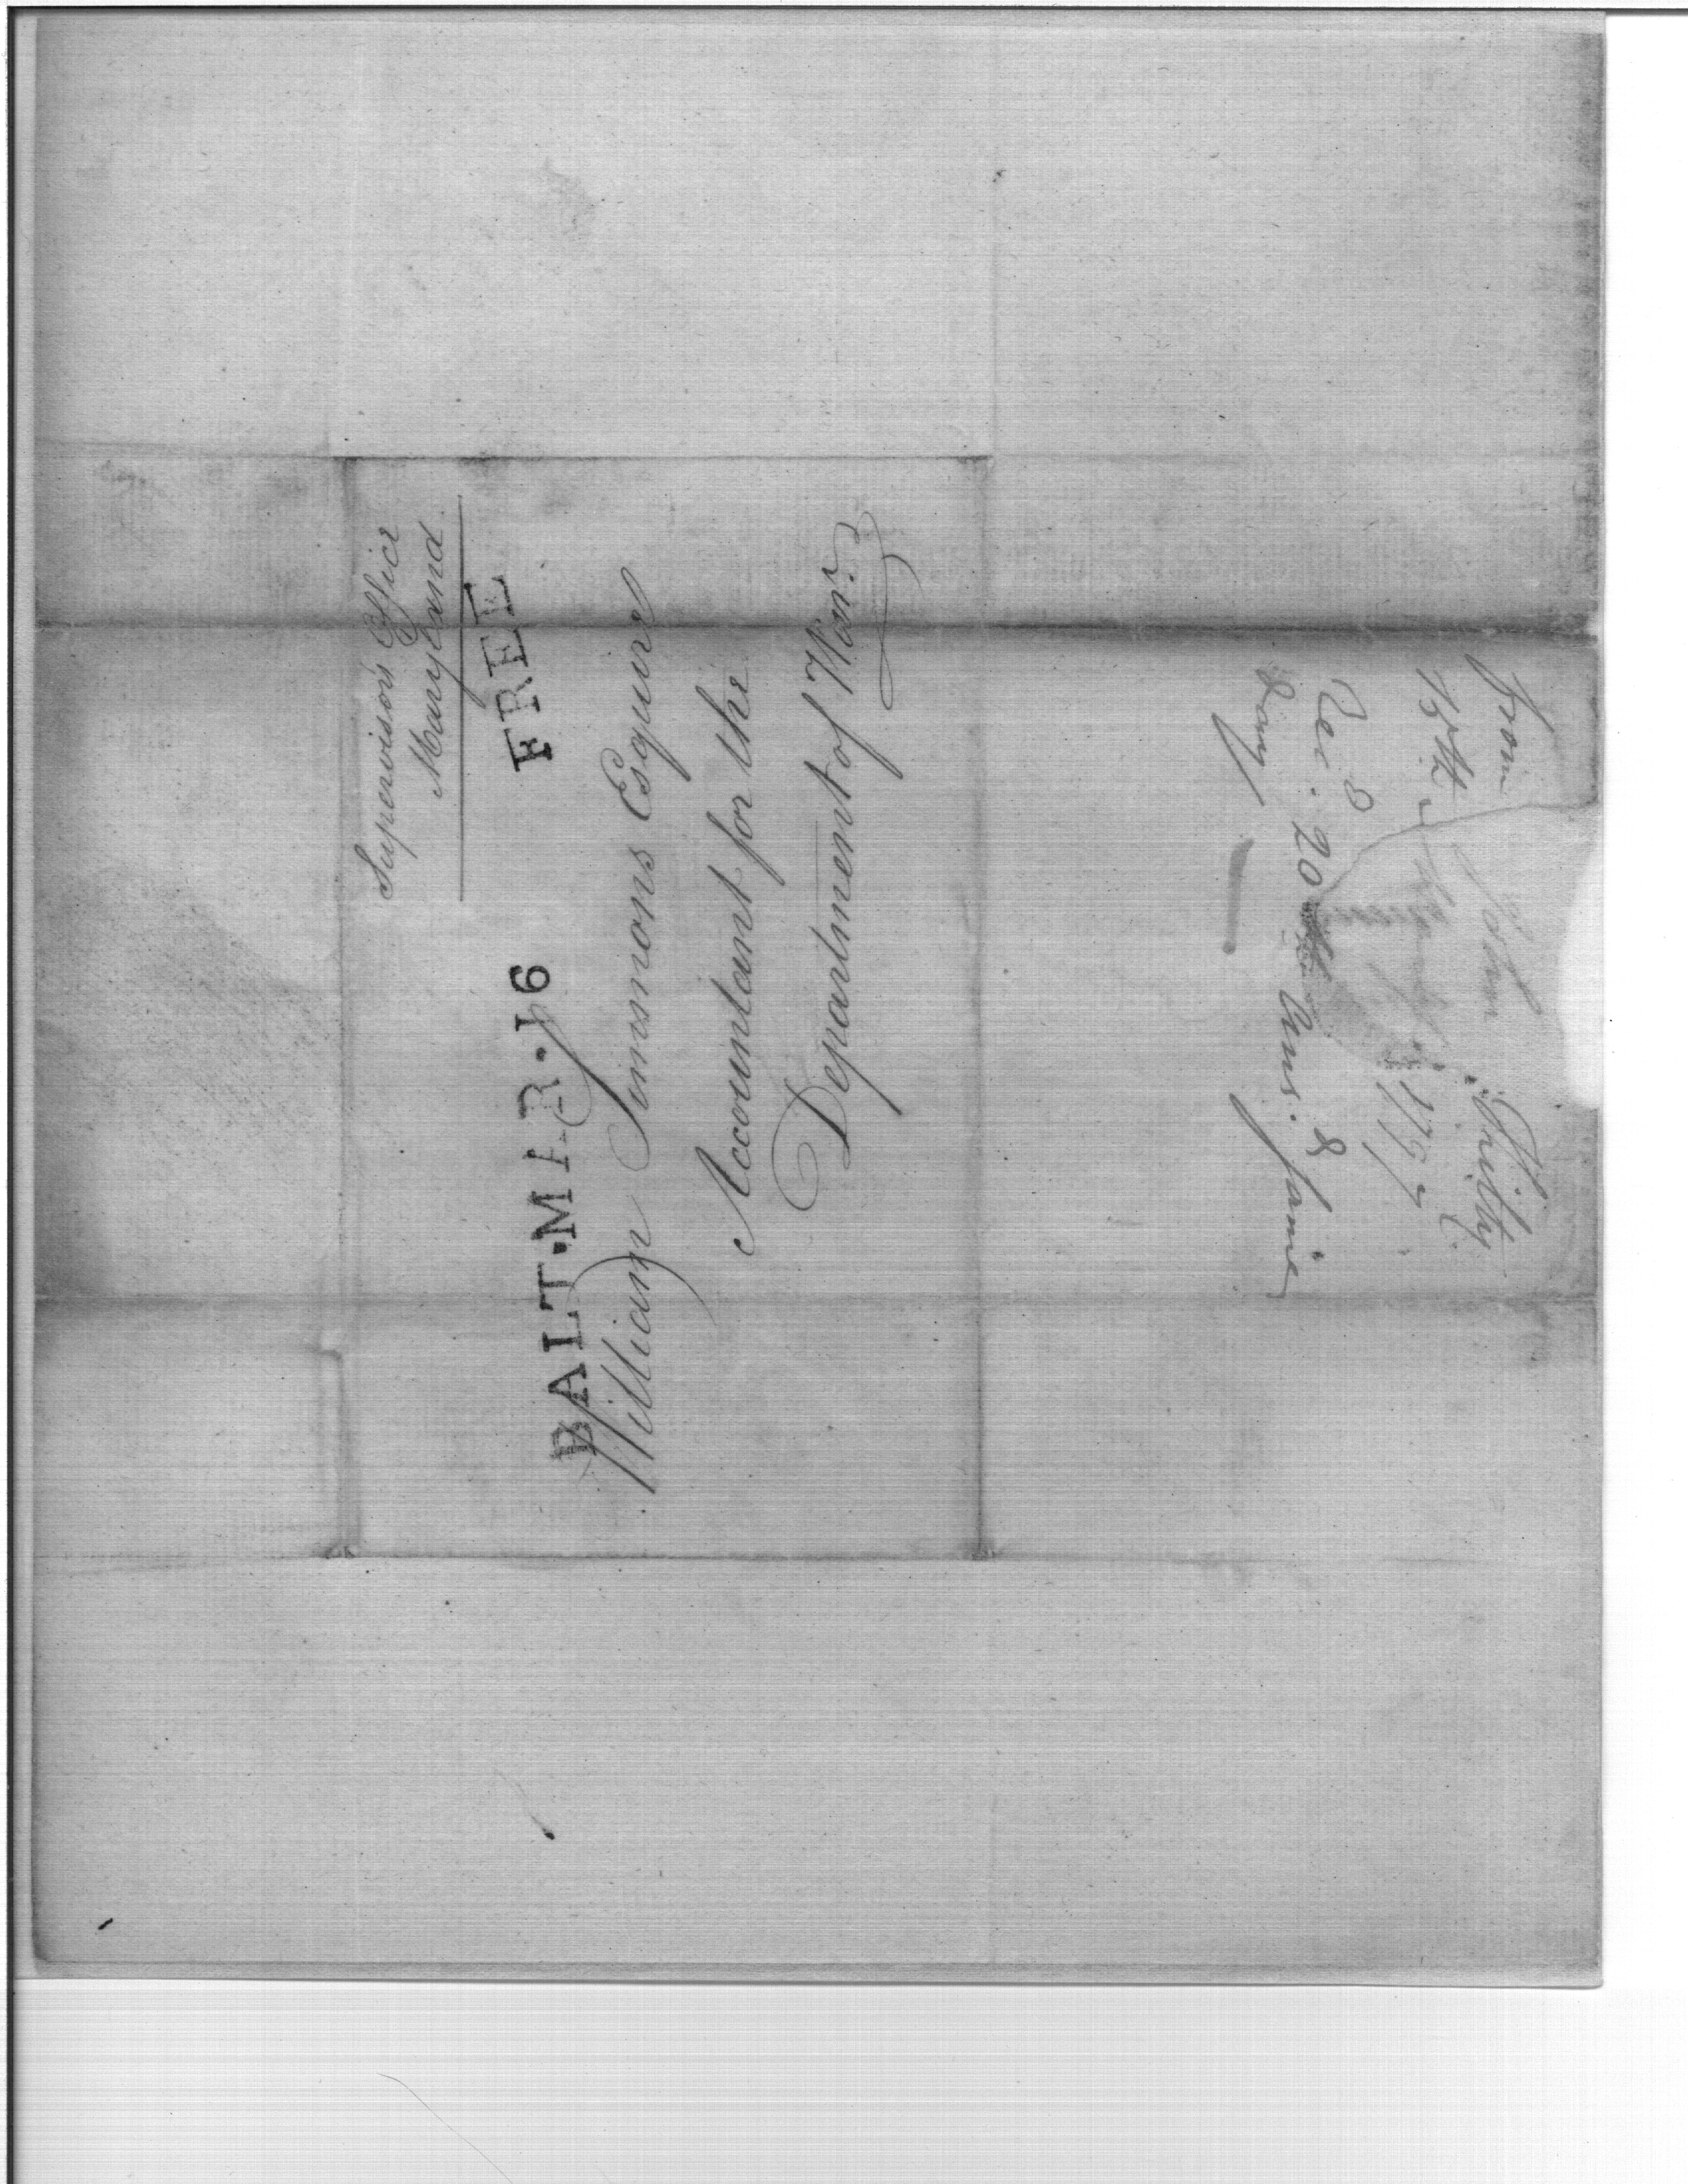 Supervisor's Office
Maryland
FREE
BALT·MAR·16
William Simmons Esquire
Accountant for the
Department of War.
from John
15th 1797
Rec. 20th Ans. & same
day